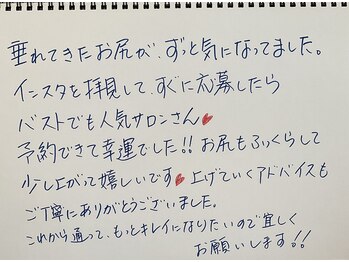 垂れてきたお尻が、ずっと気になってました。
インスタを拝見して、すぐに応募したら
ベストでも人気サロンさん
予約できて幸運でした!! お尻もふっくらして
少し上がって嬉しいです 上げていくアドバイスも
ご丁寧にありがとうございました。
これから通って、もっとキレイになりたいので宜しく
お願いします!!